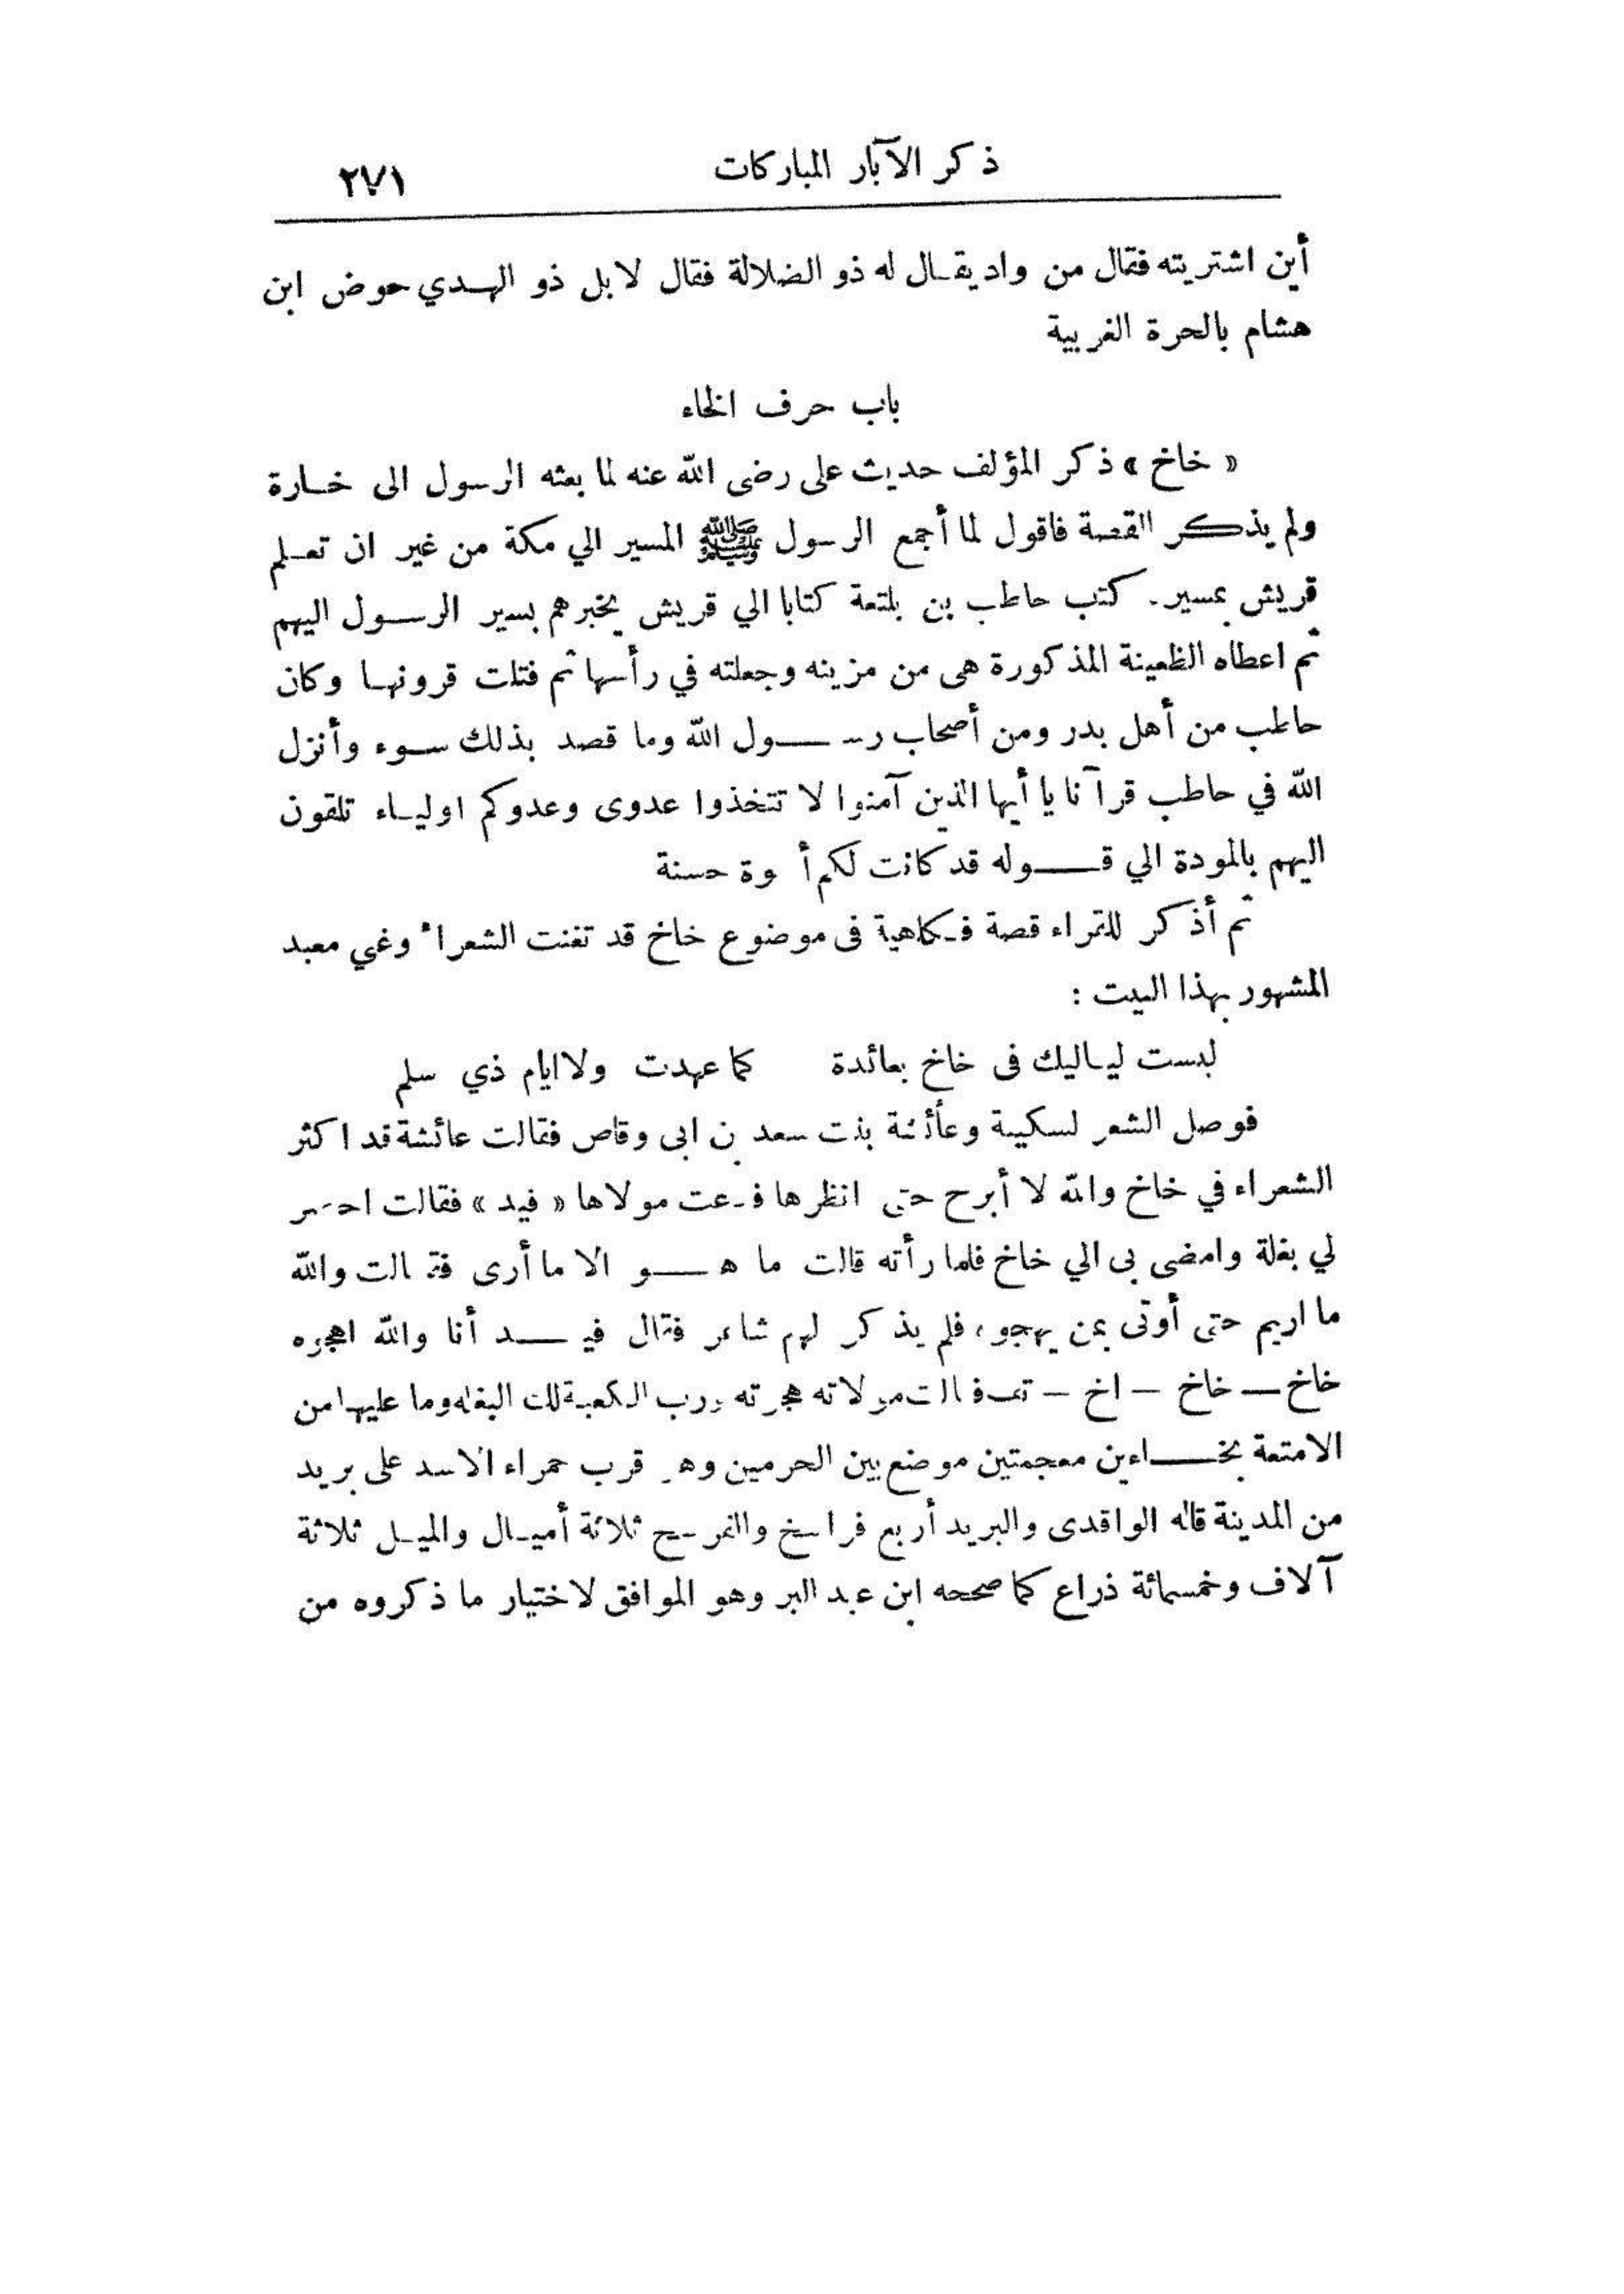 ذكر الآبار المباركات ٢٧١
أين اشتريته فقال من واد يقال له ذو الضلالة فقال لا بل ذو الهدي حوض ابن
هشام بالحرة الغربية
باب حرف الخاء
« خاخ » ذكر المؤلف حديث على رضى الله عنه لما بعثه الرسول الى خارة
ولم يذكر القصة فاقول لما أجمع الرسول ﷺ المسير الي مكة من غير ان تعلم
قريش بمسير. كتب حاطب بن بلتعة كتابا الي قريش يخبرهم بسير الرسول اليهم
ثم اعطاه الظعينة المذكورة هى من مزينه وجعلته في رأسها ثم فتلت قرونها وكان
حاطب من أهل بدر ومن أصحاب رسول الله وما قصد بذلك سوء وأنزل
الله في حاطب قرآنا يا أيها الذين آمنوا لا تتخذوا عدوى وعدوكم اولياء تلقون
اليهم بالمودة الي قوله قد كانت لكم أ وة حسنة
ثم أذكر للقراء قصة فكاهية فى موضوع خاخ قد تغنت الشعراء وغني معبد
المشهور بهذا البيت :
ليست لياليك فى خاخ بعائدة كما عهدت ولا ايام ذي سلم
فوصل الشعر لسكينة وعائشة بنت سعد بن ابى وقاص فقالت عائشة قد اكثر
الشعراء في خاخ والله لا أبرح حتى انظرها فدعت مولاها « فيد » فقالت
لي بغلة وامضى بى الي خاخ فلما رأته قالت ما هو الا ما أرى فقالت والله
ما اريم حتى أوتى بمن يهجوه فلم يذكر لهم شاعر فقال فيد أنا والله اهجوه
خاخ – خاخ – اخ – مولاته هجرته ورب الكعبة لك البغله وما عليها من
الامتعة بخاءين معجمتين موضع بين الحرمين وهو قرب حمراء الاسد على بريد
من المدينة قاله الواقدى والبريد أربع فراسخ والفرسخ ثلاثة أميال والميل ثلاثة
آلاف وخمسمائة ذراع كما صححه ابن عبد البر وهو الموافق لاختيار ما ذكروه من